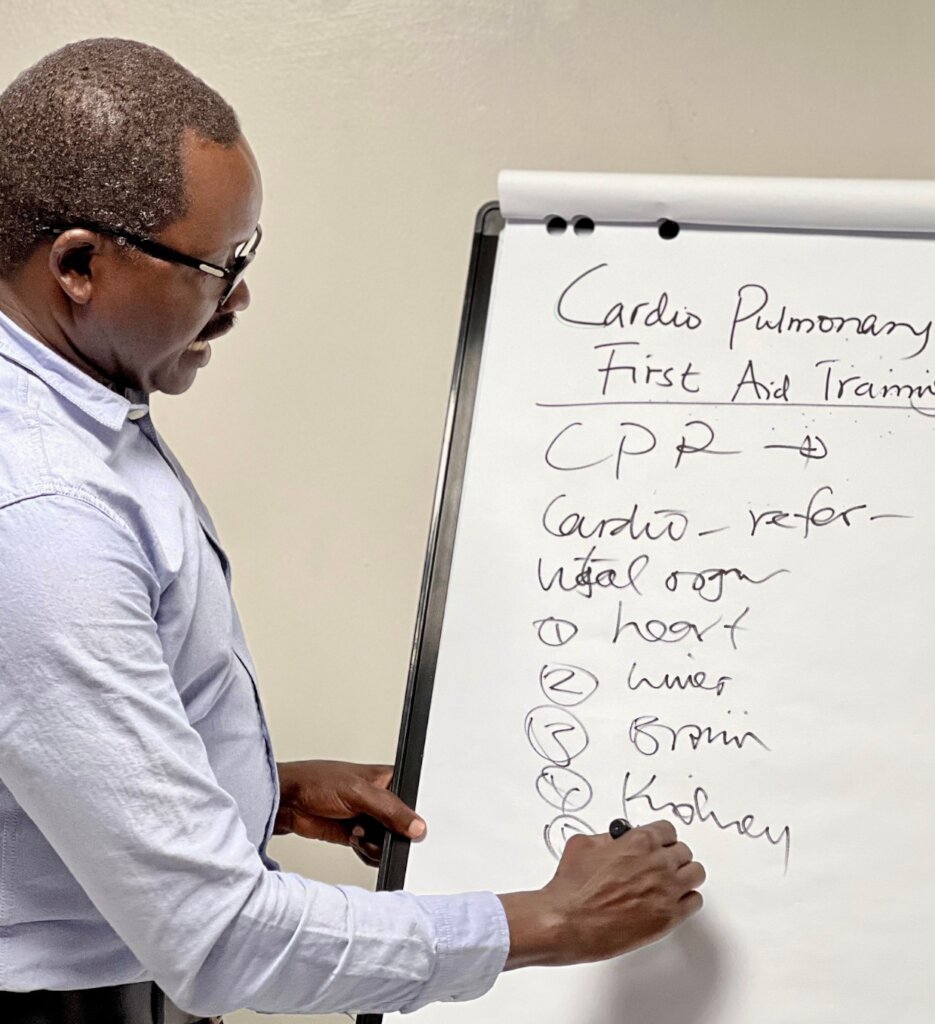 Cardio Pulmonary
First Aid Training
CPR →
Cardio - refer -
Vital organ
① heart
② Liver
③ Brain
④ Kidney
⑤